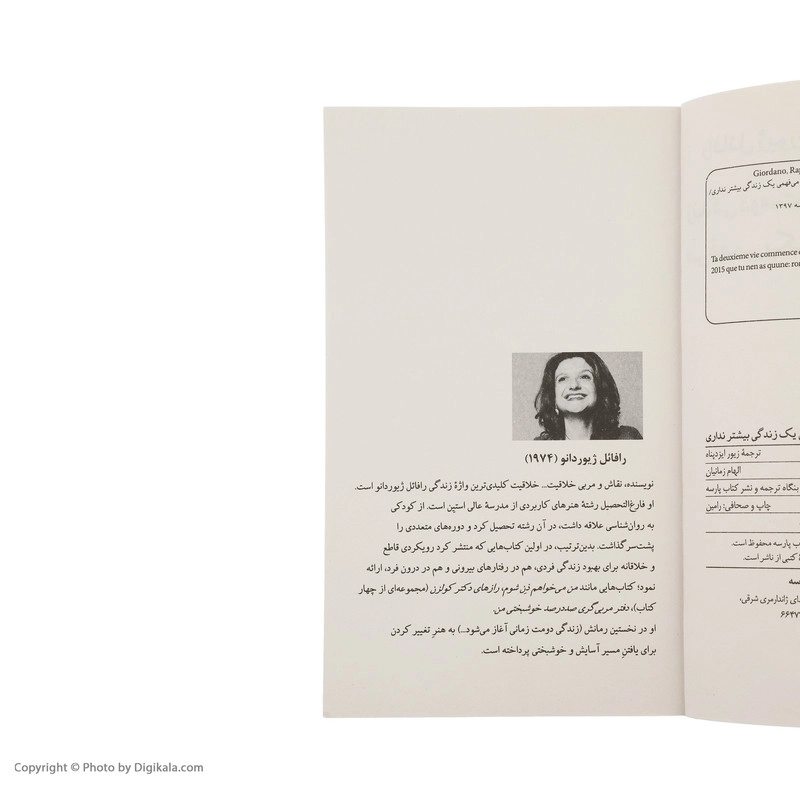 رافائل ژیوردانو (۱۹۷۴)
نویسنده، نقاش و مربی خلاقیت... خلاقیت کلیدی‌ترین واژهٔ زندگی رافائل ژیوردانو است.
او فارغ‌التحصیل رشتهٔ هنرهای کاربردی از مدرسهٔ عالی استین است. از کودکی
به روان‌شناسی علاقه داشت، در آن رشته تحصیل کرد و دوره‌های متعددی را
پشت‌سر گذاشت. بدین‌ترتیب، در اولین کتاب‌هایی که منتشر کرد رویکردی قاطع
و خلاقانه برای بهبود زندگی فردی، هم در رفتارهای بیرونی و هم در درون فرد، ارائه
نمود؛ کتاب‌هایی مانند من می‌خواهم ذِن شوم، رازهای دکتر کولزن (مجموعه‌ای از چهار
کتاب)، دفتر مربی‌گری صددرصد خوشبختی من.
او در نخستین رمانش (زندگی دومت زمانی آغاز می‌شود...) به هنرِ تغییر کردن
برای یافتنِ مسیر آسایش و خوشبختی پرداخته است.
Giordano, Rap
می‌فهمی یک زندگی بیشتر نداری/
۱۳۹۷
Ta deuxieme vie commence
2015 que tu nen as quune: ro
یک زندگی بیشتر نداری
ترجمهٔ زیور ایزدپناه
الهام زمانیان
بنگاه ترجمه و نشر کتاب پارسه
چاپ و صحافی: رامین
پارسه محفوظ است.
کتبی از ناشر است.
ژاندارمری شرقی،
۶۶۴۷
Copyright © Photo by Digikala.com